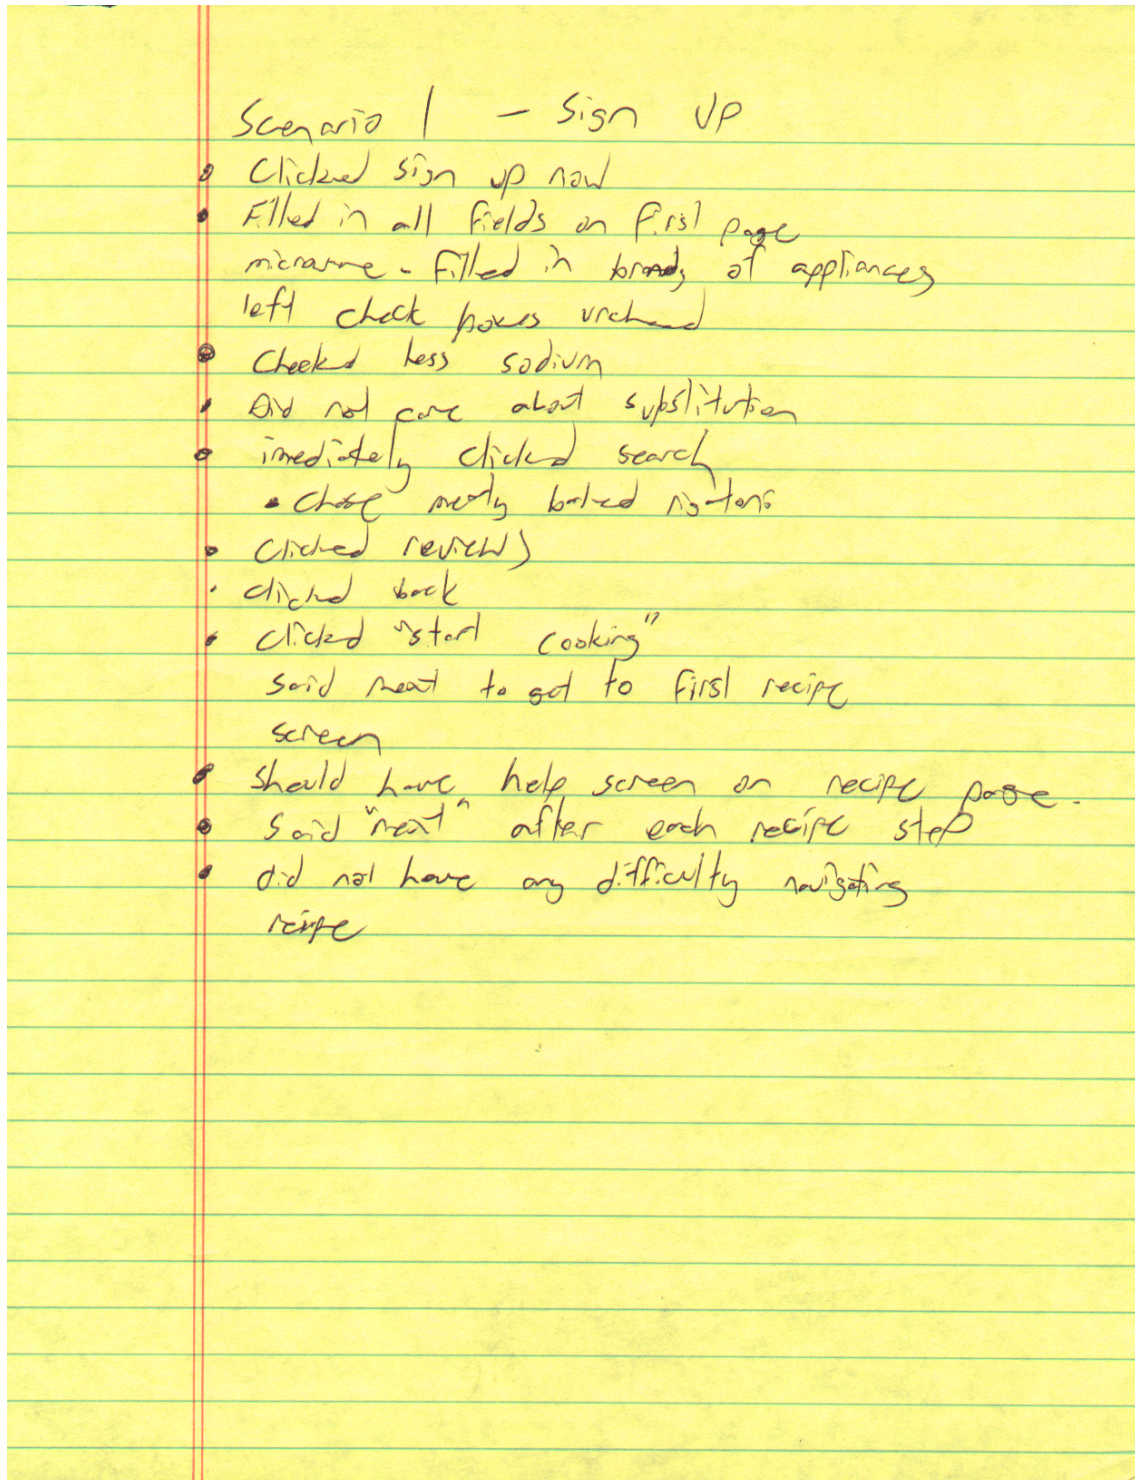 Scenario 1 - Sign up
Clicked sign up now
Filled in all fields on first page
microwave - filled in brands of appliances
left check boxes
Checked less sodium
Did not care about substitution
imediately clicked search
chose meaty baked rigatoni
Clicked reviews
clicked back
clicked "start cooking"
said next to get to first recipe
screen
Should have help screen on recipe page.
Said "next" after each recipe step
did not have any difficulty navigating
recipe